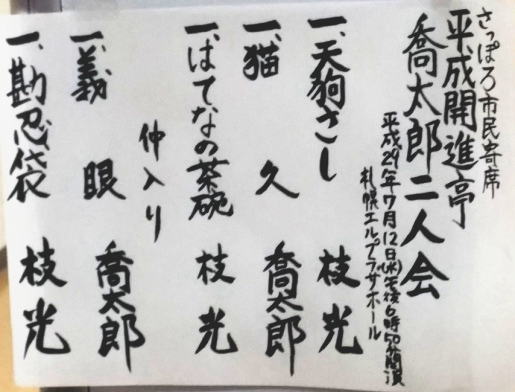 さっぽろ市民寄席
平成開進亭
喬太郎二人会
平成29年7月12日(水)午後6時50分開演
札幌エルプラザホール
一、天狗さし 枝光
一、猫久 喬太郎
一、はてなの茶碗 枝光
仲入り
一、義眼 喬太郎
一、勘忍袋 枝光